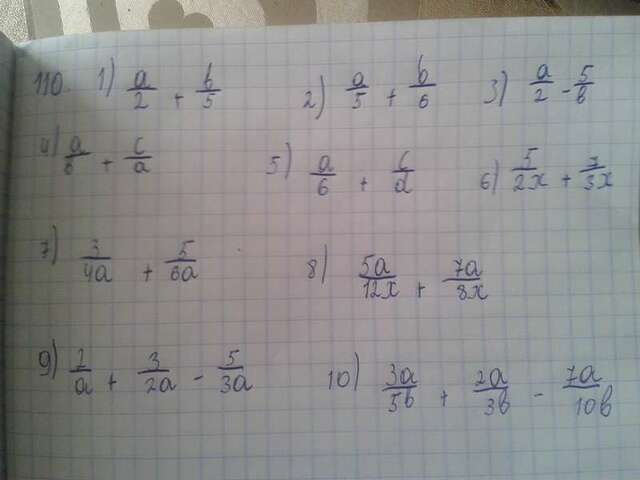 110. 1) a/2 + b/5 2) a/5 + b/6 3) a/2 - 5/b
4) a/b + c/a 5) a/6 + c/d 6) 5/2x + 7/3x
7) 3/4a + 5/6a 8) 5a/12x + 7a/8x
9) 2/a + 3/2a - 5/3a 10) 3a/5b + 2a/3b - 7a/10b